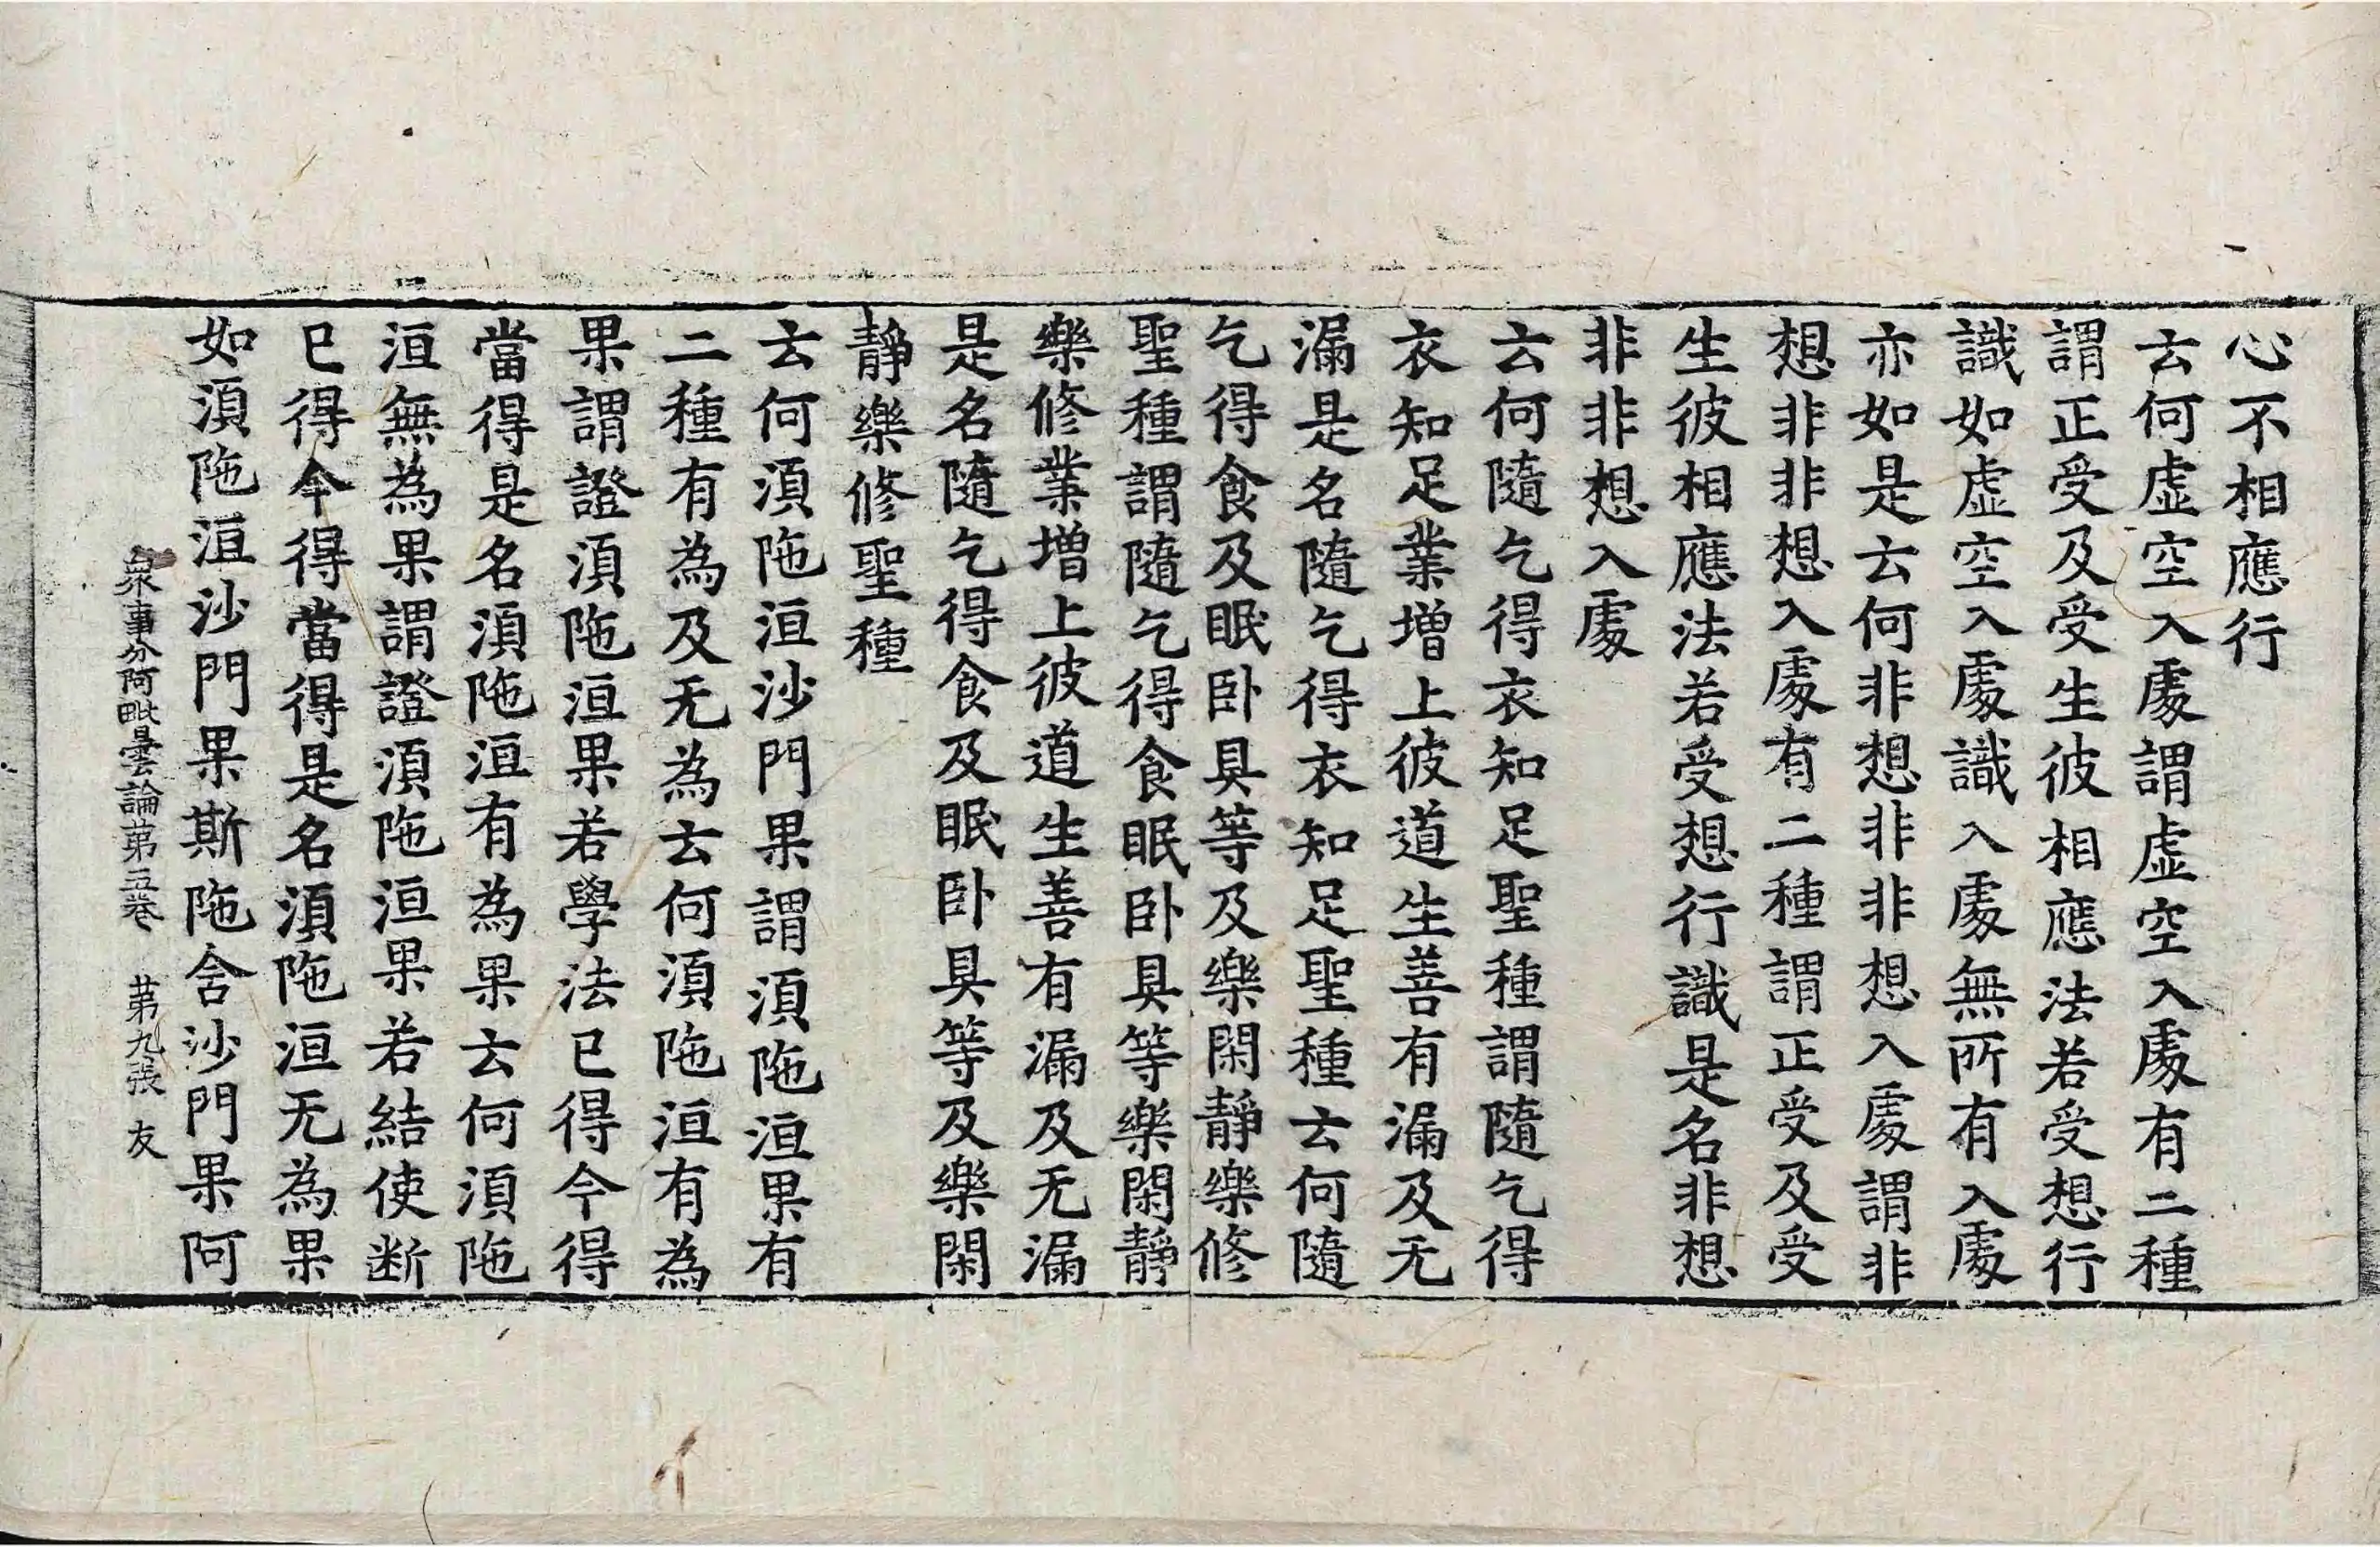 心不相應行
云何虛空入處謂虛空入處有二種
謂正受及受生彼相應法若受想行
識如虛空入處識入處無所有入處
亦如是云何非想非非想入處謂非
想非非想入處有二種謂正受及受
生彼相應法若受想行識是名非想
非非想入處
云何隨乞得衣知足聖種謂隨乞得
衣知足業增上彼道生善有漏及无
漏是名隨乞得衣知足聖種云何隨
乞得食及眠卧具等及樂閑靜樂修
聖種謂隨乞得食眠卧具等樂閑靜
樂修業增上彼道生善有漏及无漏
是名隨乞得食及眠卧具等及樂閑
靜樂修聖種
云何湏陁洹沙門果謂湏陁洹果有
二種有為及无為云何湏陁洹有為
果謂證湏陁洹果若學法已得今得
當得是名湏陁洹有為果云何湏陁
洹無為果謂證湏陁洹果若結使断
已得今得當得是名湏陁洹无為果
如湏陁洹沙門果斯陁舍沙門果阿
衆事分阿毗曇論苐五卷 苐九張 友